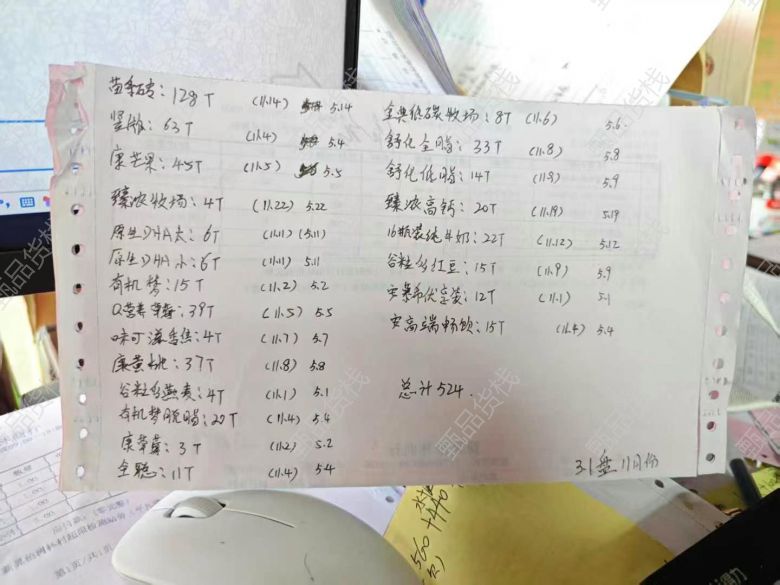 苗条砖：128T (11.14) 5.14
竖雅：63T (11.4) 5.4
康芒果：45T (11.5) 5.5
臻浓牧场：4T (11.22) 5.22
原生DHA大：6T (11.11) (5.11)
原生DHA小：6T (11.11) 5.11
有机梦：15T (11.2) 5.2
Q营养草莓：39T (11.5) 5.5
味可滋香蕉：4T (11.7) 5.7
康黄桃：37T (11.8) 5.8
谷粒多燕麦：4T (11.1) 5.1
有机梦脱脂：20T (11.4) 5.4
康草莓：3T (11.2) 5.2
全聪：11T (11.4) 5.4
金典低碳牧场：8T (11.6) 5.6
舒化全脂：33T (11.8) 5.8
舒化低脂：14T (11.9) 5.9
臻浓高钙：20T (11.19) 5.19
16瓶装纯牛奶：22T (11.12) 5.12
谷粒多红豆：15T (11.9) 5.9
安慕希优享装：12T (11.1) 5.1
安高端畅饮：15T (11.4) 5.4
总计524.
3.1盘11月份
甄品货栈